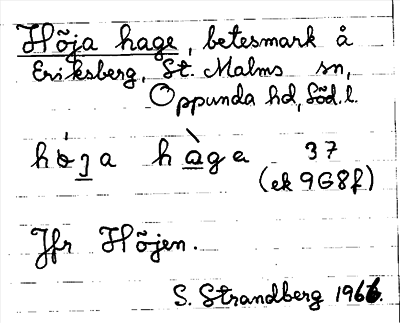 Hõja hage, betesmark å
Eriksberg, St. Malms sn,
Oppunda hd, Söd. l.
hòȷa hàga 37
(ek 9G8f)
Jfr Hõjen.
S. Strandberg 1966.